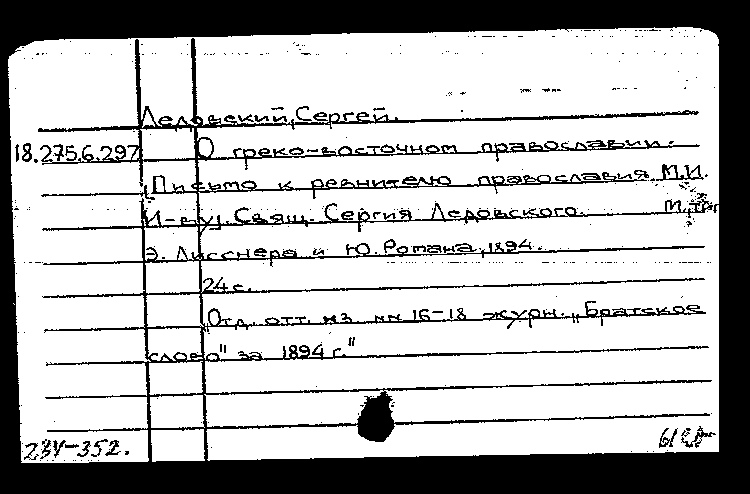 Ледовский, Сергей.
18.275.6.297 О греко-восточном православии.
„Письмо к ревнителю православия М.И.
И-ву). Свящ. Сергия Ледовского. М., тип.
Э. Лисснера и Ю. Романа, 1894.
24 с.
„Отд. отт. из №№ 16-18 журн. „Братское
слово" за 1894 г."
234-352.